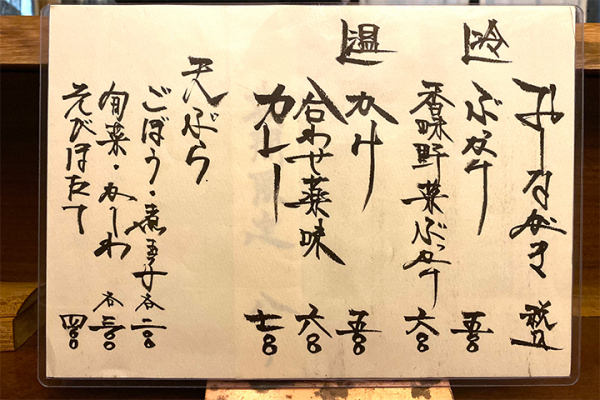 おしながき 税込
冷
ぶっかけ 五〇〇
香味野菜ぶっかけ 六〇〇
温
かけ 五〇〇
合わせ薬味 六〇〇
カレー 七〇〇
天ぷら
ごぼう・煮玉子 各二〇〇
旬菜・かしわ 各三〇〇
えびほたて 四〇〇